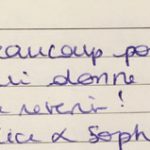 eaucoup po
ui donne
revenir !
ice & Soph